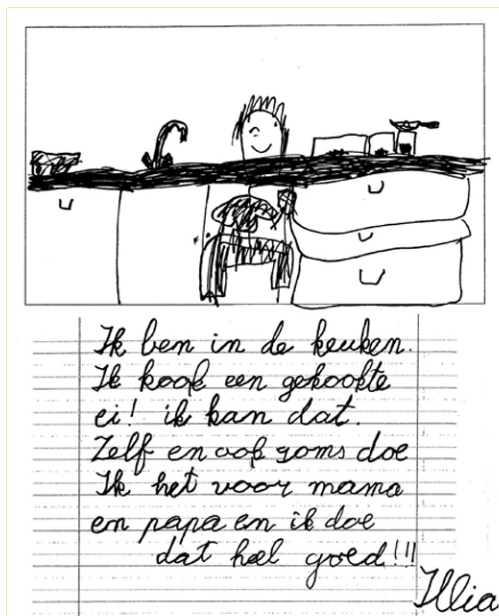 Ik ben in de keuken.
Ik kook een gekookte
ei! ik kan dat.
Zelf en ook soms doe
Ik het voor mama
en papa en ik doe
dat heel goed!!!
Illia